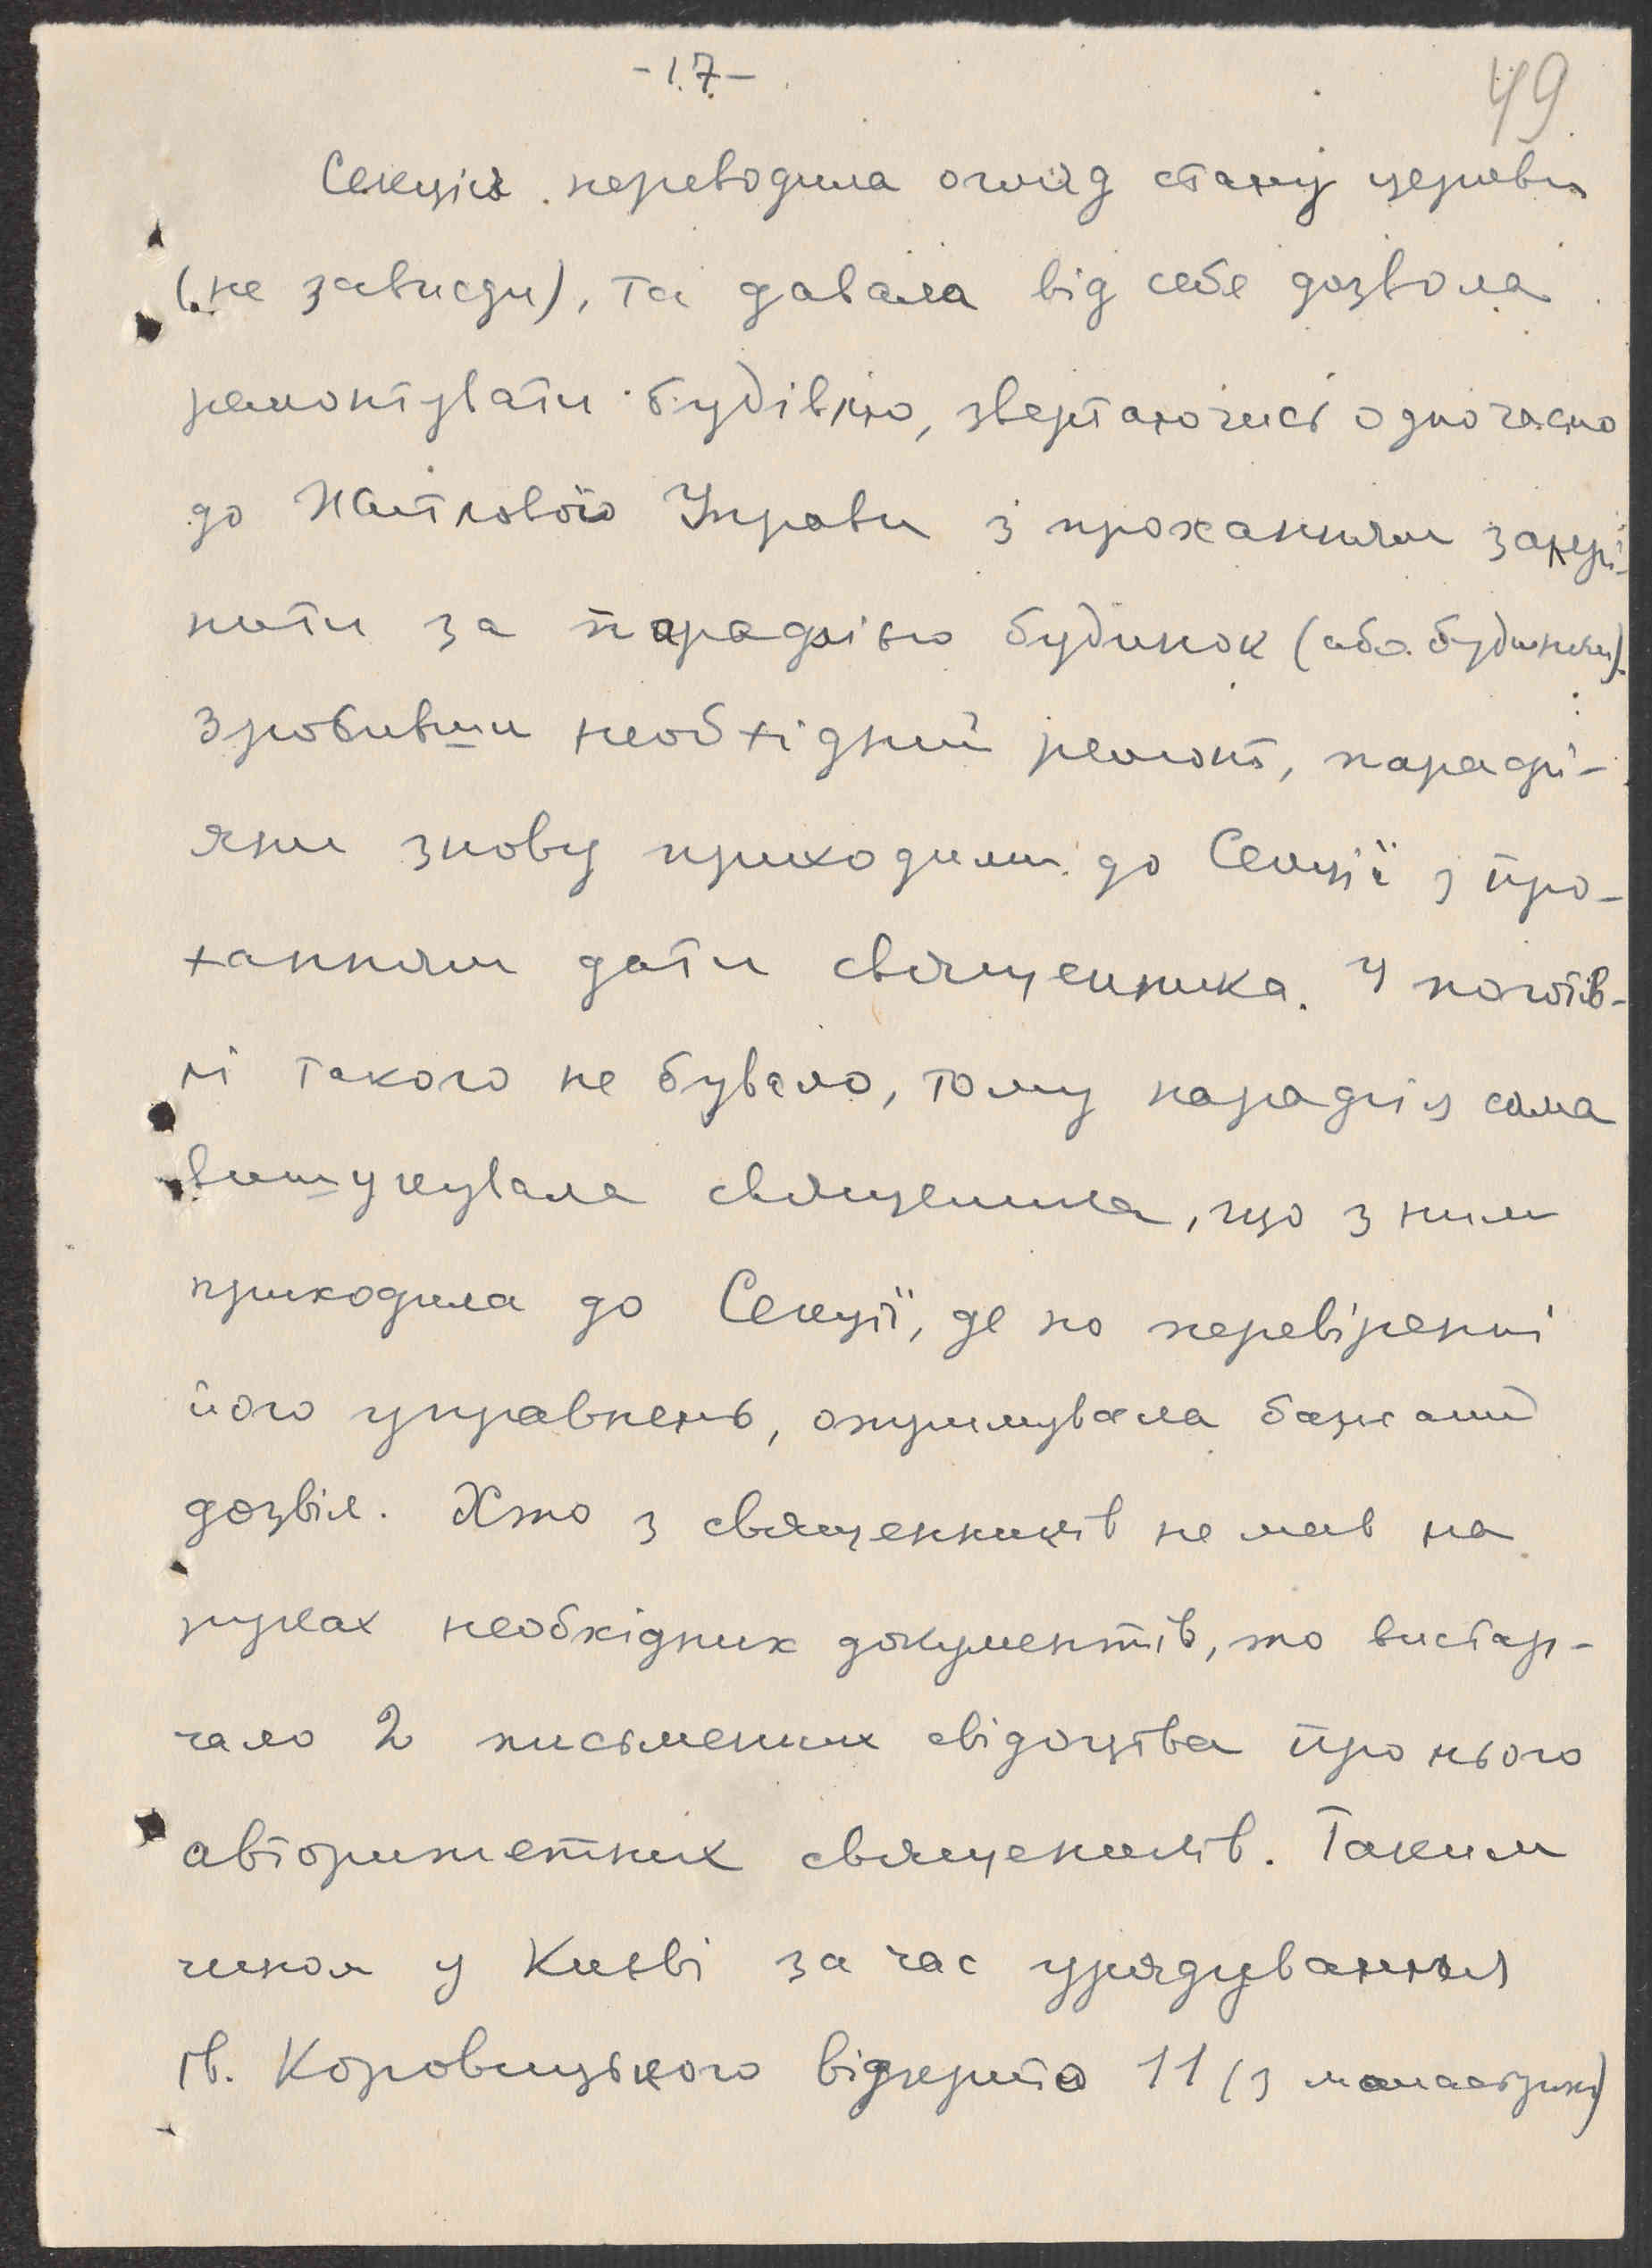 -17-
49
Секція переводила огляд стану церкви
(не завжди), та давала від себе дозвола
ремонтувати будівлю, звертаючись одночасно
до Житлової Управи з проханням закрі-
пити за парафією будинок (або будинки).
Зробивши необхідний ремонт, парафі-
яни знову приходили до Секції з про-
ханням дати священника. У потів-
ні такого не бувало, тому парафія сама
вишукувала священика, що з ним
приходила до Секції, де по перевіренні
його управнень, отримувала бажаний
дозвіл. Хто з священників не мав на
руках необхідних документів, то вистар-
чало 2 письменних свідоцтва про нього
авторитетних священиків. Таким
чином у Києві за час урядування
Ів. Коровицького відкрито 11 (з монастирями)